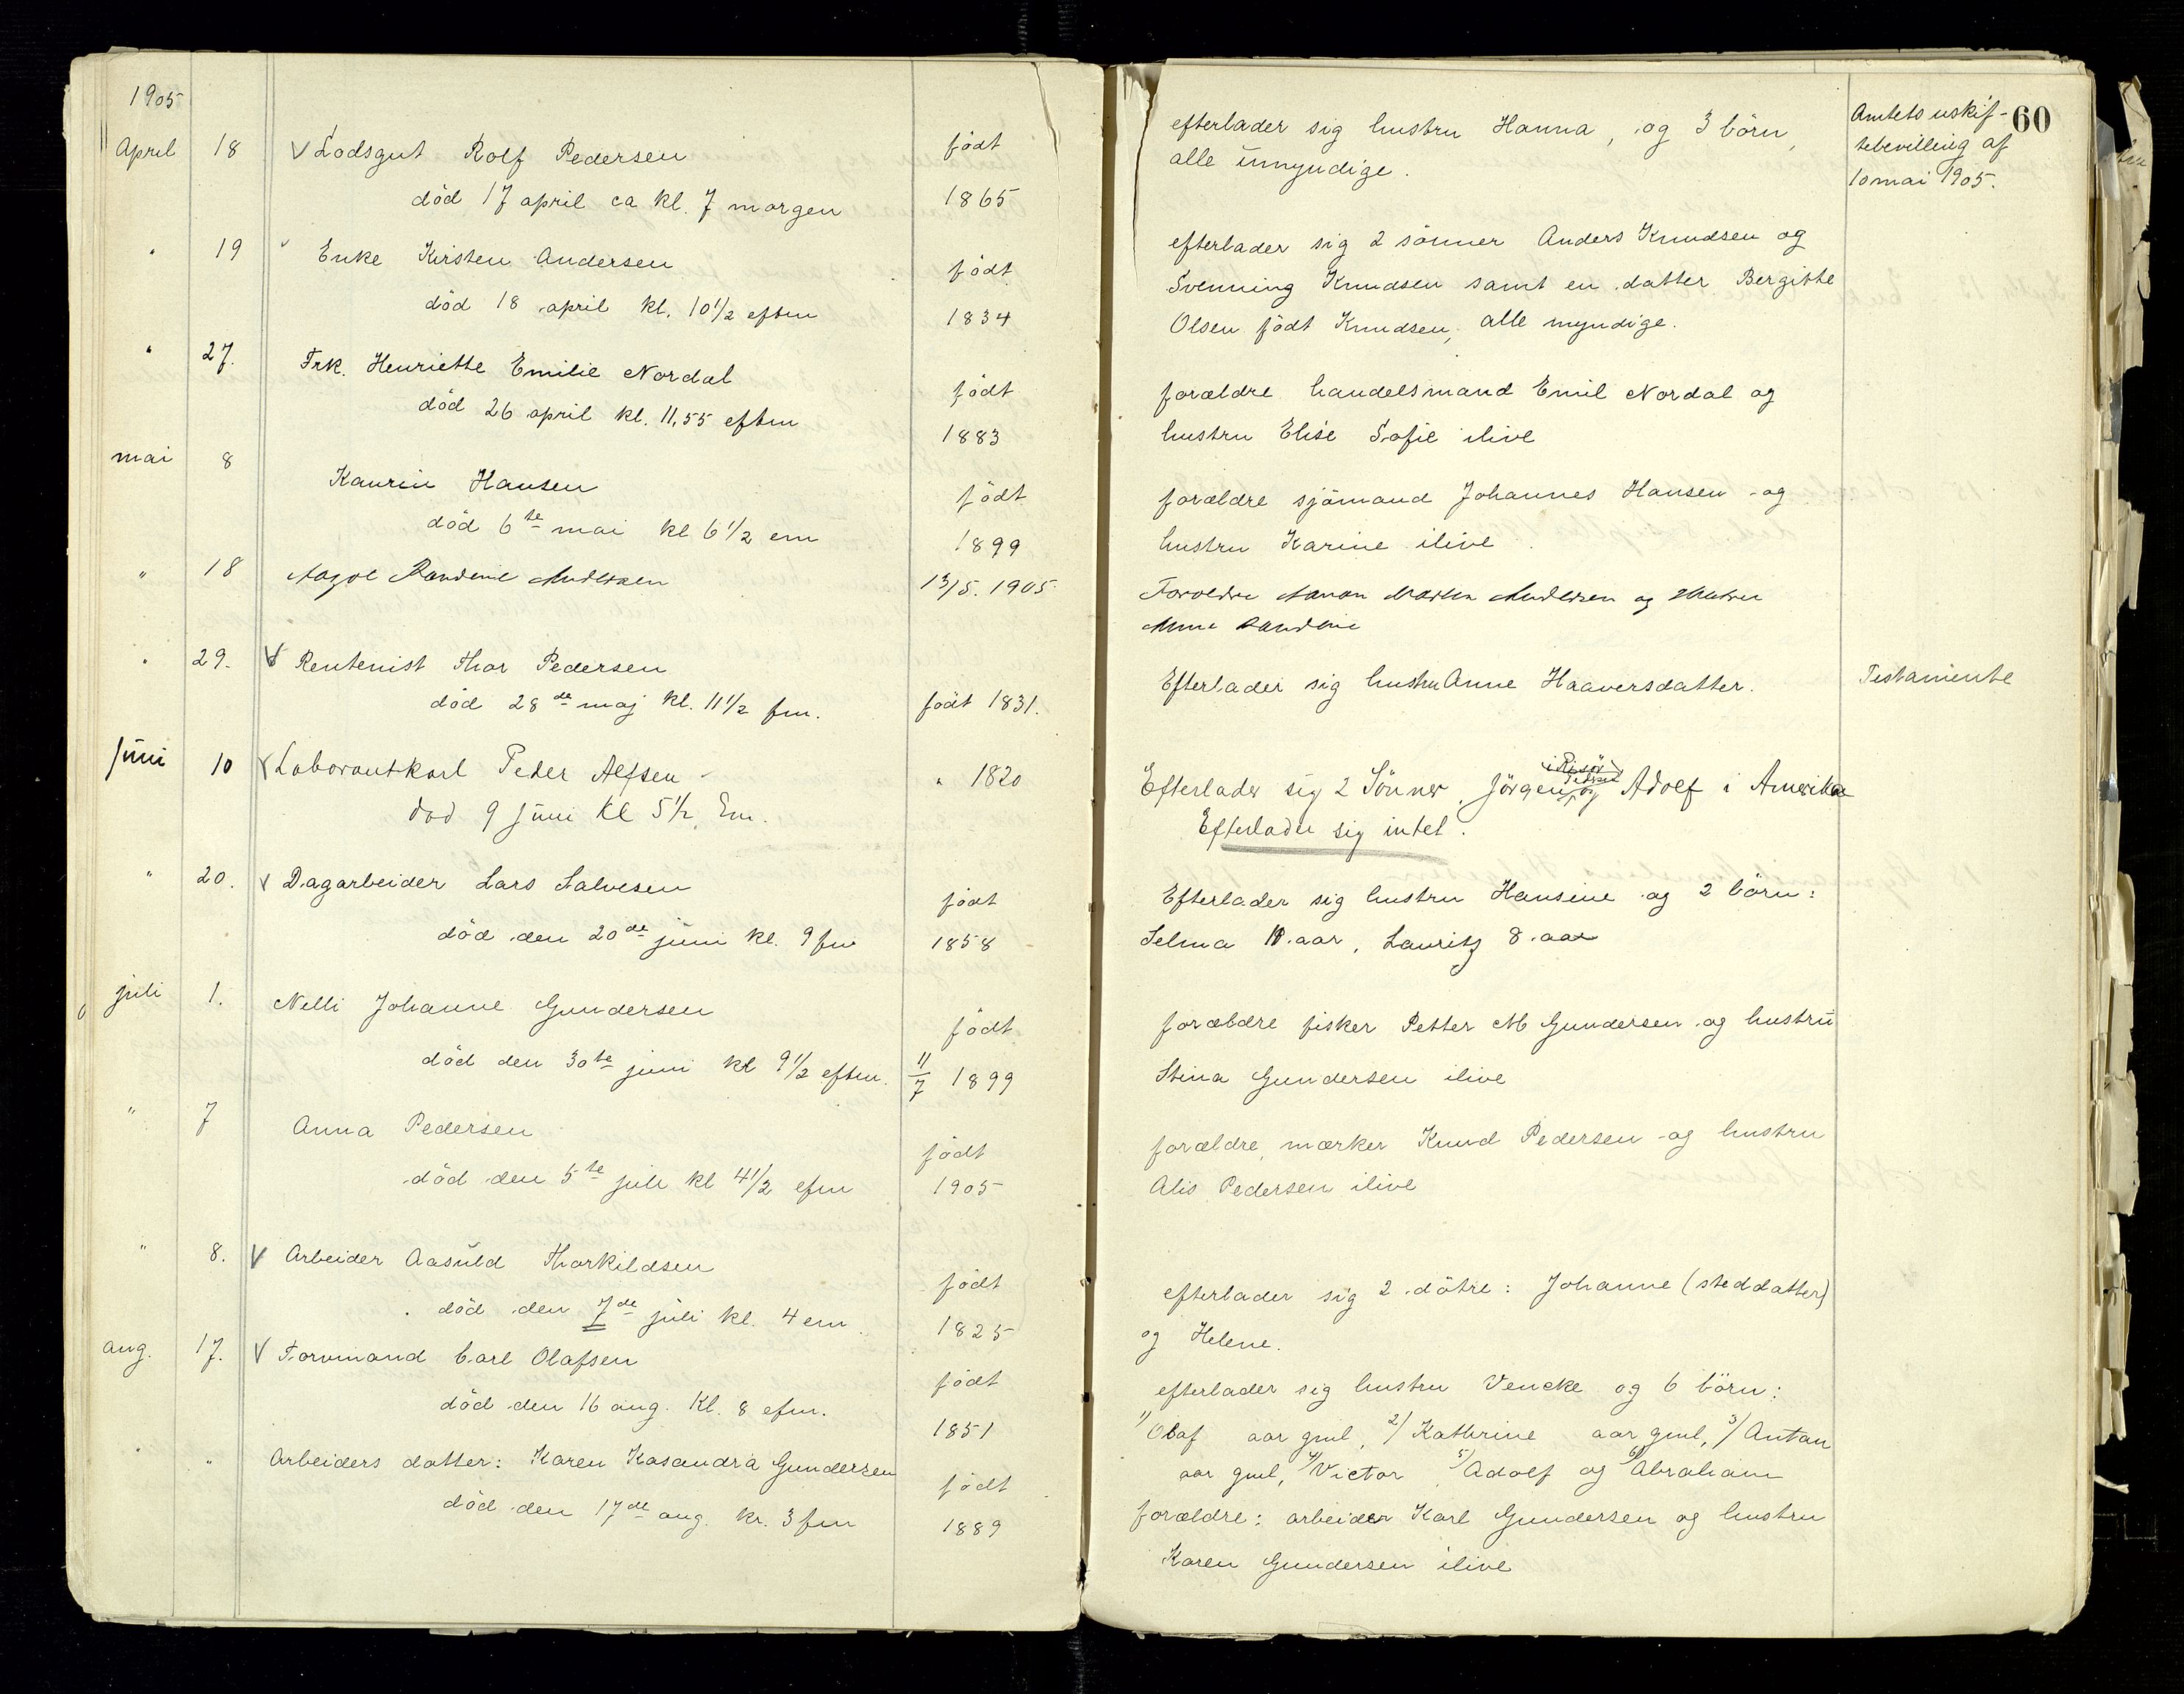 1905
April 18 V Lodsgut Rolf Pedersen födt
död 17 april ca kl. 7 morgen 1865
" 19 V Enke Kirsten Andersen födt
död 18 april kl. 10 1/2 eftm 1834
" 27. Frk. Henriette Emilie Nordal födt
död 26 april kl. 11,55 eftm 1883
mai 8 Kaurin Hansen födt
död 6te mai kl 6 1/2 em 1899
" 18 Andersen 13/5. 1905
" 29. V Rentenist Thor Pedersen
död 28de maj kl. 11 1/2 fm. födt 1831.
Juni 10 V Laborantkarl Peder Alfsen " 1820
död 9 Juni Kl 5 1/2 Em.
" 20. V Dagarbeider Lars Salvesen födt
död den 20de juni kl. 9 fm 1858
juli 1. Nelli Johanne Gundersen födt
död den 30te juni kl 9 1/2 eftm. 11/7 1899
" 7 Anna Pedersen födt
död den 5te juli kl 4 1/2 efm 1905
" 8. V Arbeider Aasuld Thorkildsen födt
död den 7de juli kl. 4 em 1825
aug. 17. V Formand Carl Olafsen födt
död den 16 aug. Kl. 8 efm. 1851
" " Arbeiders datter: Karen Kasandra Gundersen födt
död den 17de aug. kr. 3 fm 1889
60
efterlader sig hustru Hanna, og 3 börn,
alle umyndige.
Amtets uskif-
tebevilling af
10 mai 1905.
efterlader sig 2 sönner Anders Knudsen og
Svenning Knudsen samt en datter Bergitte
Olsen födt Knudsen, alle myndige.
forældre handelsmand Emil Nordal og
hustru Elise Sofie ilive
forældre sjömand Johannes Hansen og
hustru Karine ilive
Foreldre Martin Andersen og Hustru
Anna
Efterlader sig hustru Anne Haaversdatter. Testamente
i Risör
Efterlader sig 2 Sönner, Jörgen og Adolf i Amerika
Efterlader sig intet.
Efterlader sig hustru Hansine og 2 börn:
Selma 11 aar, Lauritz 8 aar
forældre fisker Petter M Gundersen og hustru
Stina Gundersen ilive
forældre, mærker Knud Pedersen og hustru
Alis Pedersen ilive
efterlader sig 2 dötre: Johanne (steddatter)
og Helene.
efterlader sig hustru Vencke og 6 börn:
1/ Olaf aar gml, 2/ Kathrine aar gml, 3/ Antan
aar gml, 4/ Victor 5/ Adolf og 6/ Abraham
forældre: arbeider Karl Gundersen og hustru
Karen Gundersen ilive